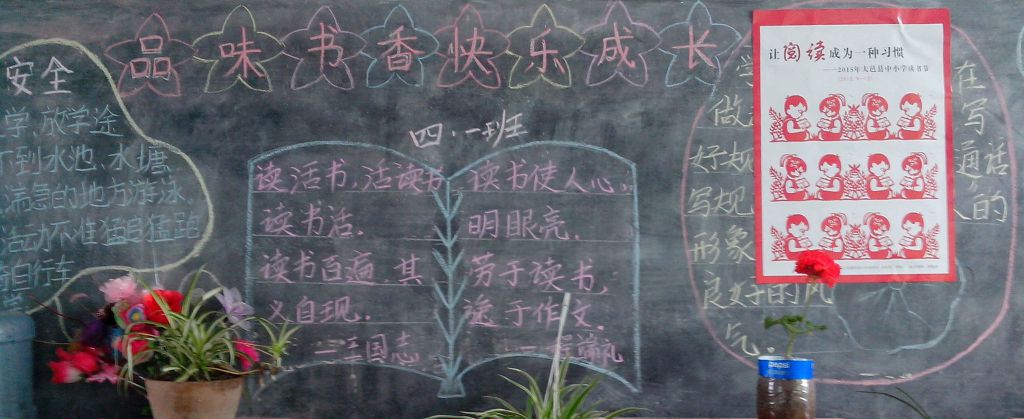 品味书香快乐成长
四·一班
安全
学、放学途
不到水池、水塘
湍急的地方游泳
活动不准猛追猛跑
骑自行车
读活书,活读书
读书活.
读书百遍.其
义自现.
—三国志.
读书使人心,
明眼亮.
劳于读书,
逸于作文.
—程端礼
让阅读成为一种习惯
——2015年大邑县中小学读书节
学
在
做
写
好规
通话
写规
人的
形象
良好的风
气.
pepsi